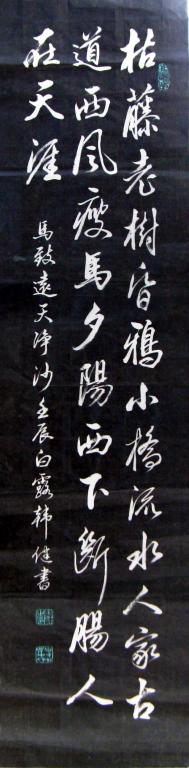 枯藤老樹昏鴉小橋流水人家古
道西风瘦馬夕陽西下斷腸人
在天涯
馬致遠天净沙壬辰白露韩健書